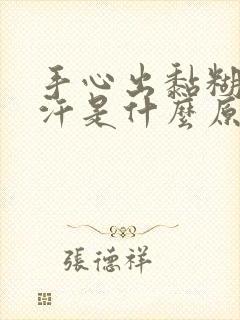 手心出黏糊
汗是什麼原
張德祥